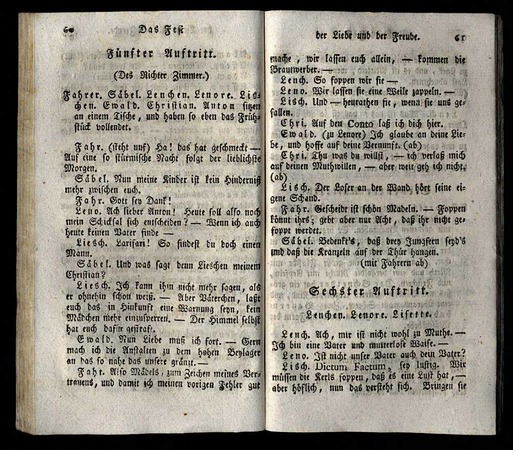 60 Das Fest
Fünfter Auftritt.
(Des Richter Zimmer.)
Fahrer, Säbel, Lenchen, Lenore, Lis-
chen, Ewald, Christian, Anton sitzen
an einem Tische, und haben so eben das Früh-
stück vollendet.
Fahr. (steht auf) Ha! das hat geschmeckt —
Auf eine so stürmische Nacht folgt der lieblichste
Morgen.
Säbel. Nun meine Kinder ist kein Hinderniß
mehr zwischen euch.
Fahr. Gott sey Dank!
Leno. Ach lieber Anton! Heute soll also noch
mein Schicksal sich entscheiden? — Wenn ich auch
heute keinen Vater finde —
Liesch. Larifari! So findest du doch einen
Mann.
Säbel. Und was sagt denn Lieschen meinem
Christian?
Liesch. Ich kann ihm nicht mehr sagen, als
er ohnehin schon weiß. — Aber Väterchen, laßt
euch das in Hinkunft eine Warnung seyn, kein
Mädchen mehr einzusperren. — Der Himmel selbst
hat euch dafür gestraft.
Ewald. Nun Liebe muß ich fort. — Gern
mach ich die Anstalten zu dem hohen Beylager
an das so nahe das unsere gränzt. —
Fahr. Also Mädels, zum Zeichen meines Ver-
trauens, und damit ich meinen vorigen Fehler gut
der Liebe und der Freude. 61
mache, wir lassen euch allein, — kommen die
Brautwerber. —
Lench. So foppen wir sie —
Leno. Wir lassen sie eine Weile zappeln. —
Lisch. Und — heurathen sie, wenn sie uns ge-
fallen.
Chri. Auf den Conto laß ich dich hier.
Ewald. (zu Lenore) Ich glaube an deine Lie-
be, und hoffe auf deine Vernunft. (ab)
Chri. Thu was du willst, — ich verlaß mich
auf deinen Muthwillen, — aber weit geh ich nicht.
(ab)
Lisch. Der Loser an der Wand, hört seine ei-
gene Schand.
Fahr. Gescheidt ist schön Madeln. — Foppen
könnt ihrs; gebt aber nur Acht, daß ihr nicht ge-
foppt werdet.
Säbel. Bedenkt's, daß drey Jungfern seyd's
und daß die Kranzeln auf der Thür hangen.
(mit Fahrern ab)
Sechster Auftritt.
Lenchen. Lenore. Lisette.
Lench. Ach, mir ist nicht wohl zu Muthe. —
Ich bin eine Vater und mutterlose Waise. —
Leno. Ist nicht unser Vater auch dein Vater?
Lisch. Dictum Factum, sey lustig. Wir
müssen die Kerls foppen, daß es eine Lust hat, —
aber höflich, nun das versteht sich. Bringen sie